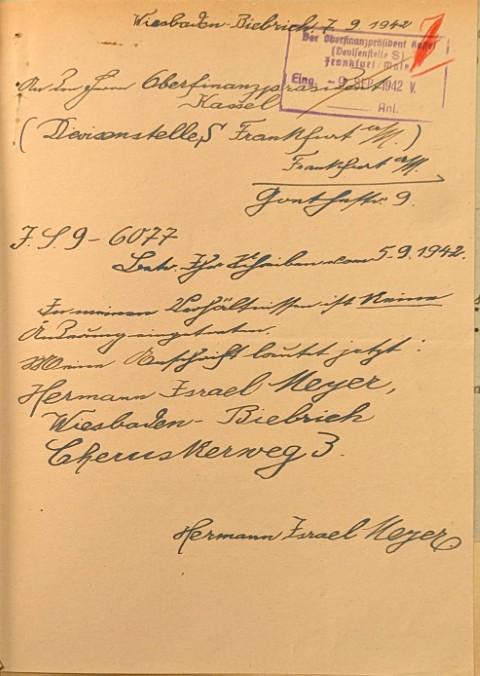 Wiesbaden-Biebrich 7. 9. 1942
Der Oberfinanzpräsident Kassel
(Devisenstelle S)
Frankfurt/Main
Eing. - 9. SEP. 1942 V.
Anl.
An den Herrn Oberfinanzpräsident
Kassel
(Devisenstelle S Frankfurt a/M.)
Frankfurt a/M.
Goethestr. 9.
J. S. 9 - 6077
Betr. Ihr Schreiben vom 5. 9. 1942.
In meinen Verhältnissen ist Keine
Änderung eingetreten.
Meine Anschrift lautet jetzt :
Hermann Israel Meyer,
Wiesbaden - Biebrich
Cheruskerweg 3.
Hermann Israel Meyer